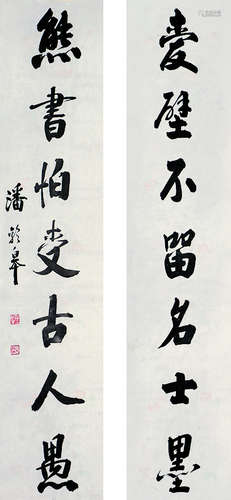 愛壁不留名士墨
熊書怕受古人愚
潘齡皋